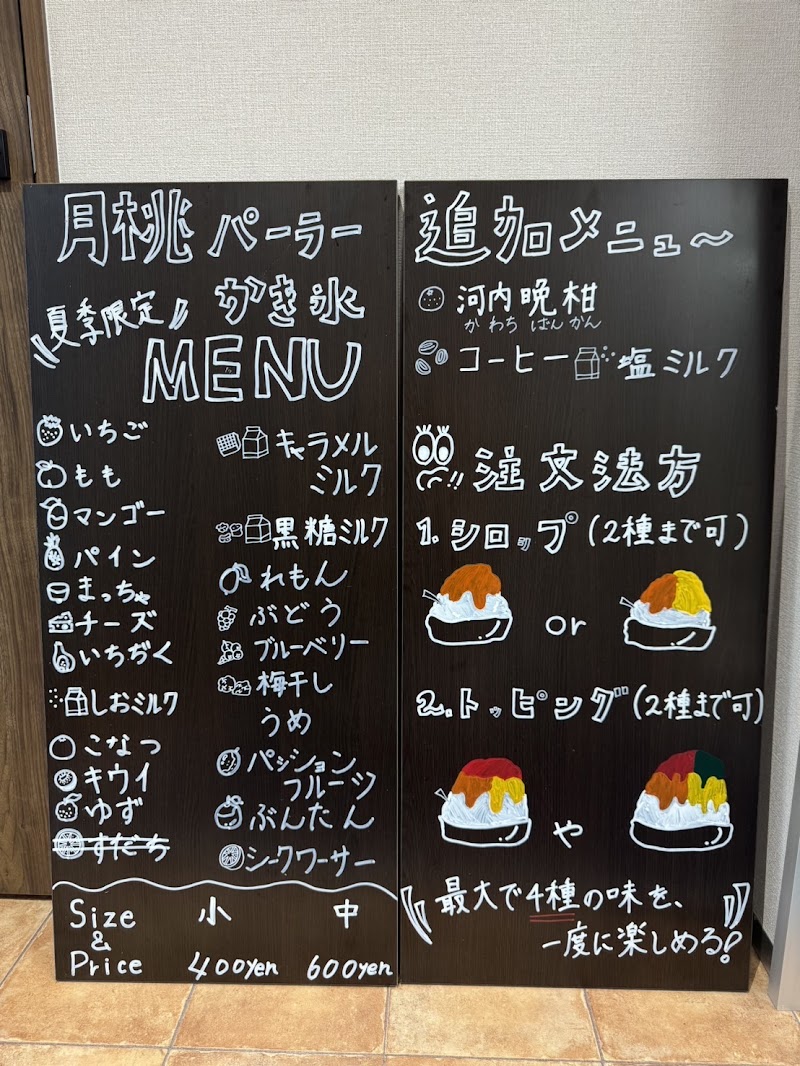 月桃パーラー
夏季限定
かき氷
MENU
いちご
もも
マンゴー
パイン
まっちゃ
チーズ
いちぢく
しおミルク
こなつ
キウイ
ゆず
すだち
キャラメル
ミルク
黒糖ミルク
れもん
ぶどう
ブルーベリー
梅干し
うめ
パッション
フルーツ
ぶんたん
シークワーサー
Size 小 中
&
Price 400yen 600yen
追加メニュ〜
河内晩柑
かわちばんかん
コーヒー 塩ミルク
!! 注文法方
1. シロップ(2種まで可)
or
2. トッピング(2種まで可)
や
最大で4種の味を、
一度に楽しめる!